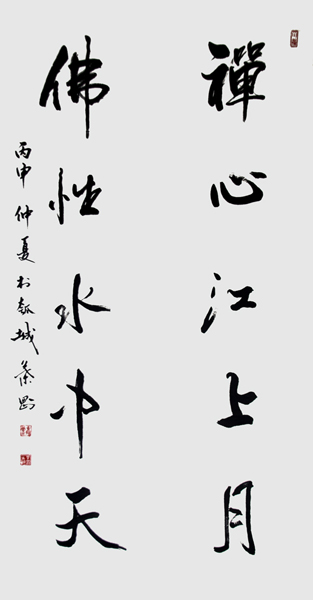 禪心江上月
佛性水中天
丙申仲夏於瓠城秦